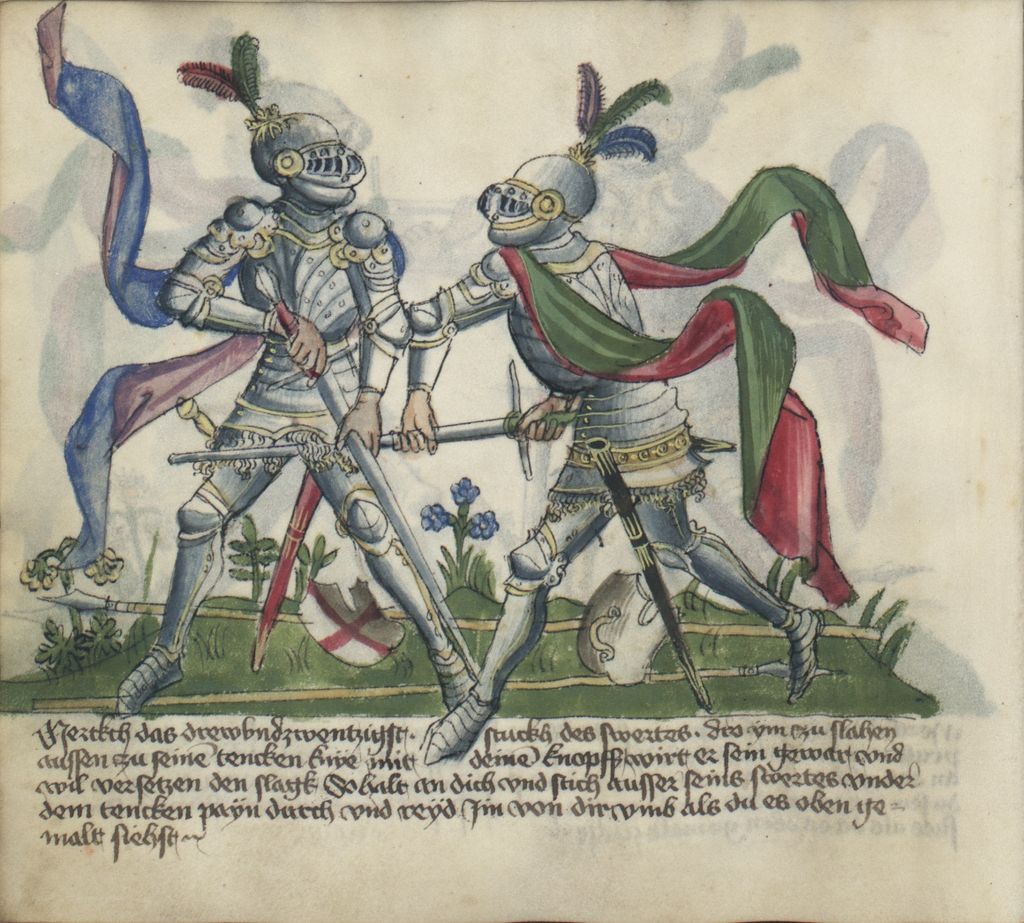 Merckch das drewundzwentzigist. stuckh des swertes. dro ym zu slahen
aussen zu seinē tencken knye mit deinē knopff wirt er sein gewar vnd
wil versetzen den slagk So halt an dich vnd stich ausser seins swertes vnder
dem tencken payn durch vnd reyd Jm von dir vmb als du es oben ge=
malt siehst~